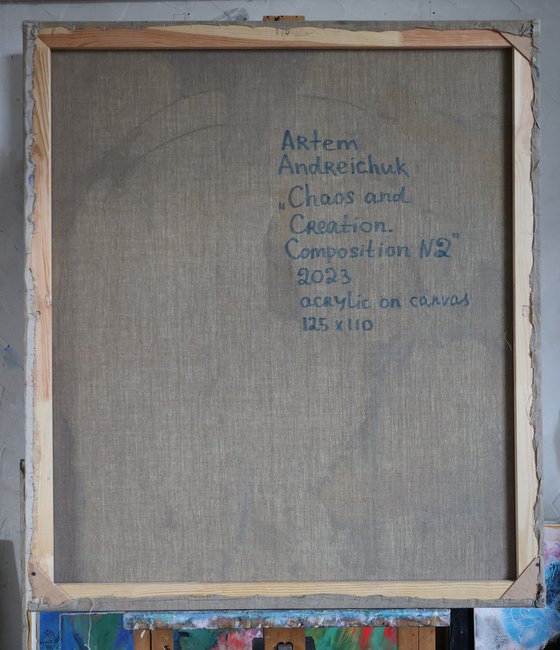 110
Artem
Andreichuk
„Chaos and
Creation.
Composition N2"
2023
acrylic on canvas
125 x 110